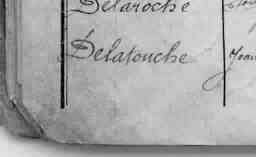 Delaroche
Delatouche
Jean